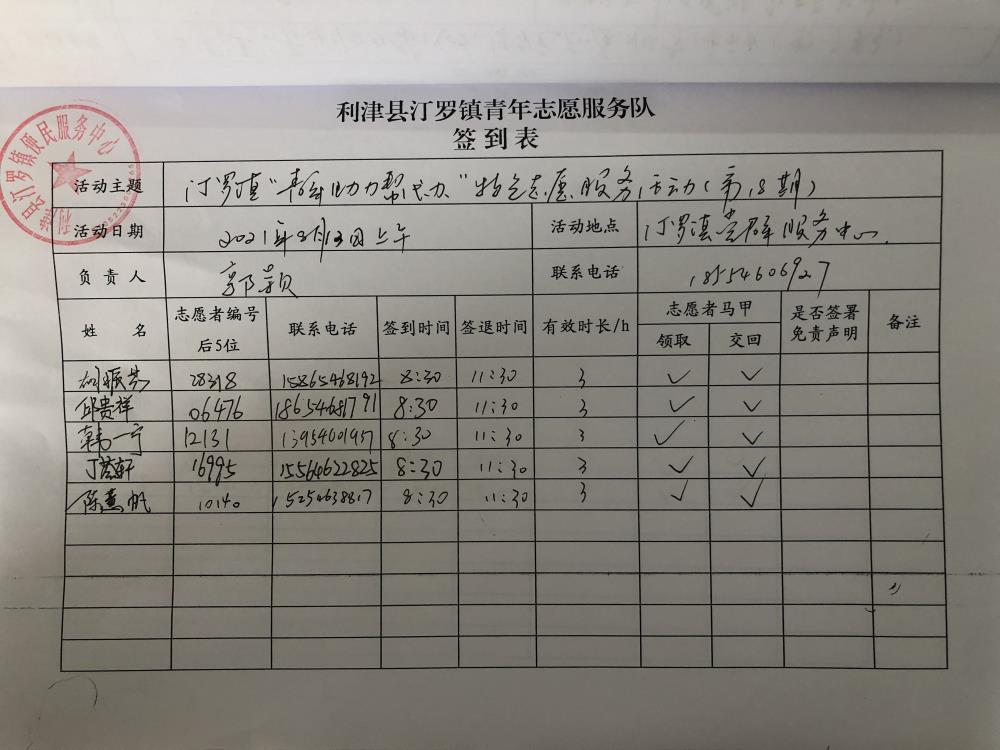 利津县汀罗镇青年志愿服务队
签到表
活动主题 汀罗镇“青年助力帮代办”特色志愿服务活动(第18期)
活动日期 2021年8月13日上午 活动地点 汀罗镇党群服务中心
负责人 郭颖 联系电话 18554606927
姓名 志愿者编号后5位 联系电话 签到时间 签退时间 有效时长/h 志愿者马甲 是否签署免责声明 备注
领取 交回
28318 15865468192 8:30 11:30 3 ✓ ✓
邱贵祥 06476 18654681791 8:30 11:30 3 ✓ ✓
韩一宁 12131 13954601957 8:30 11:30 3 ✓ ✓
16995 15564622825 8:30 11:30 3 ✓ ✓
陈熹帆 10140 15254638817 8:30 11:30 3 ✓ ✓
县汀罗镇便民服务中心